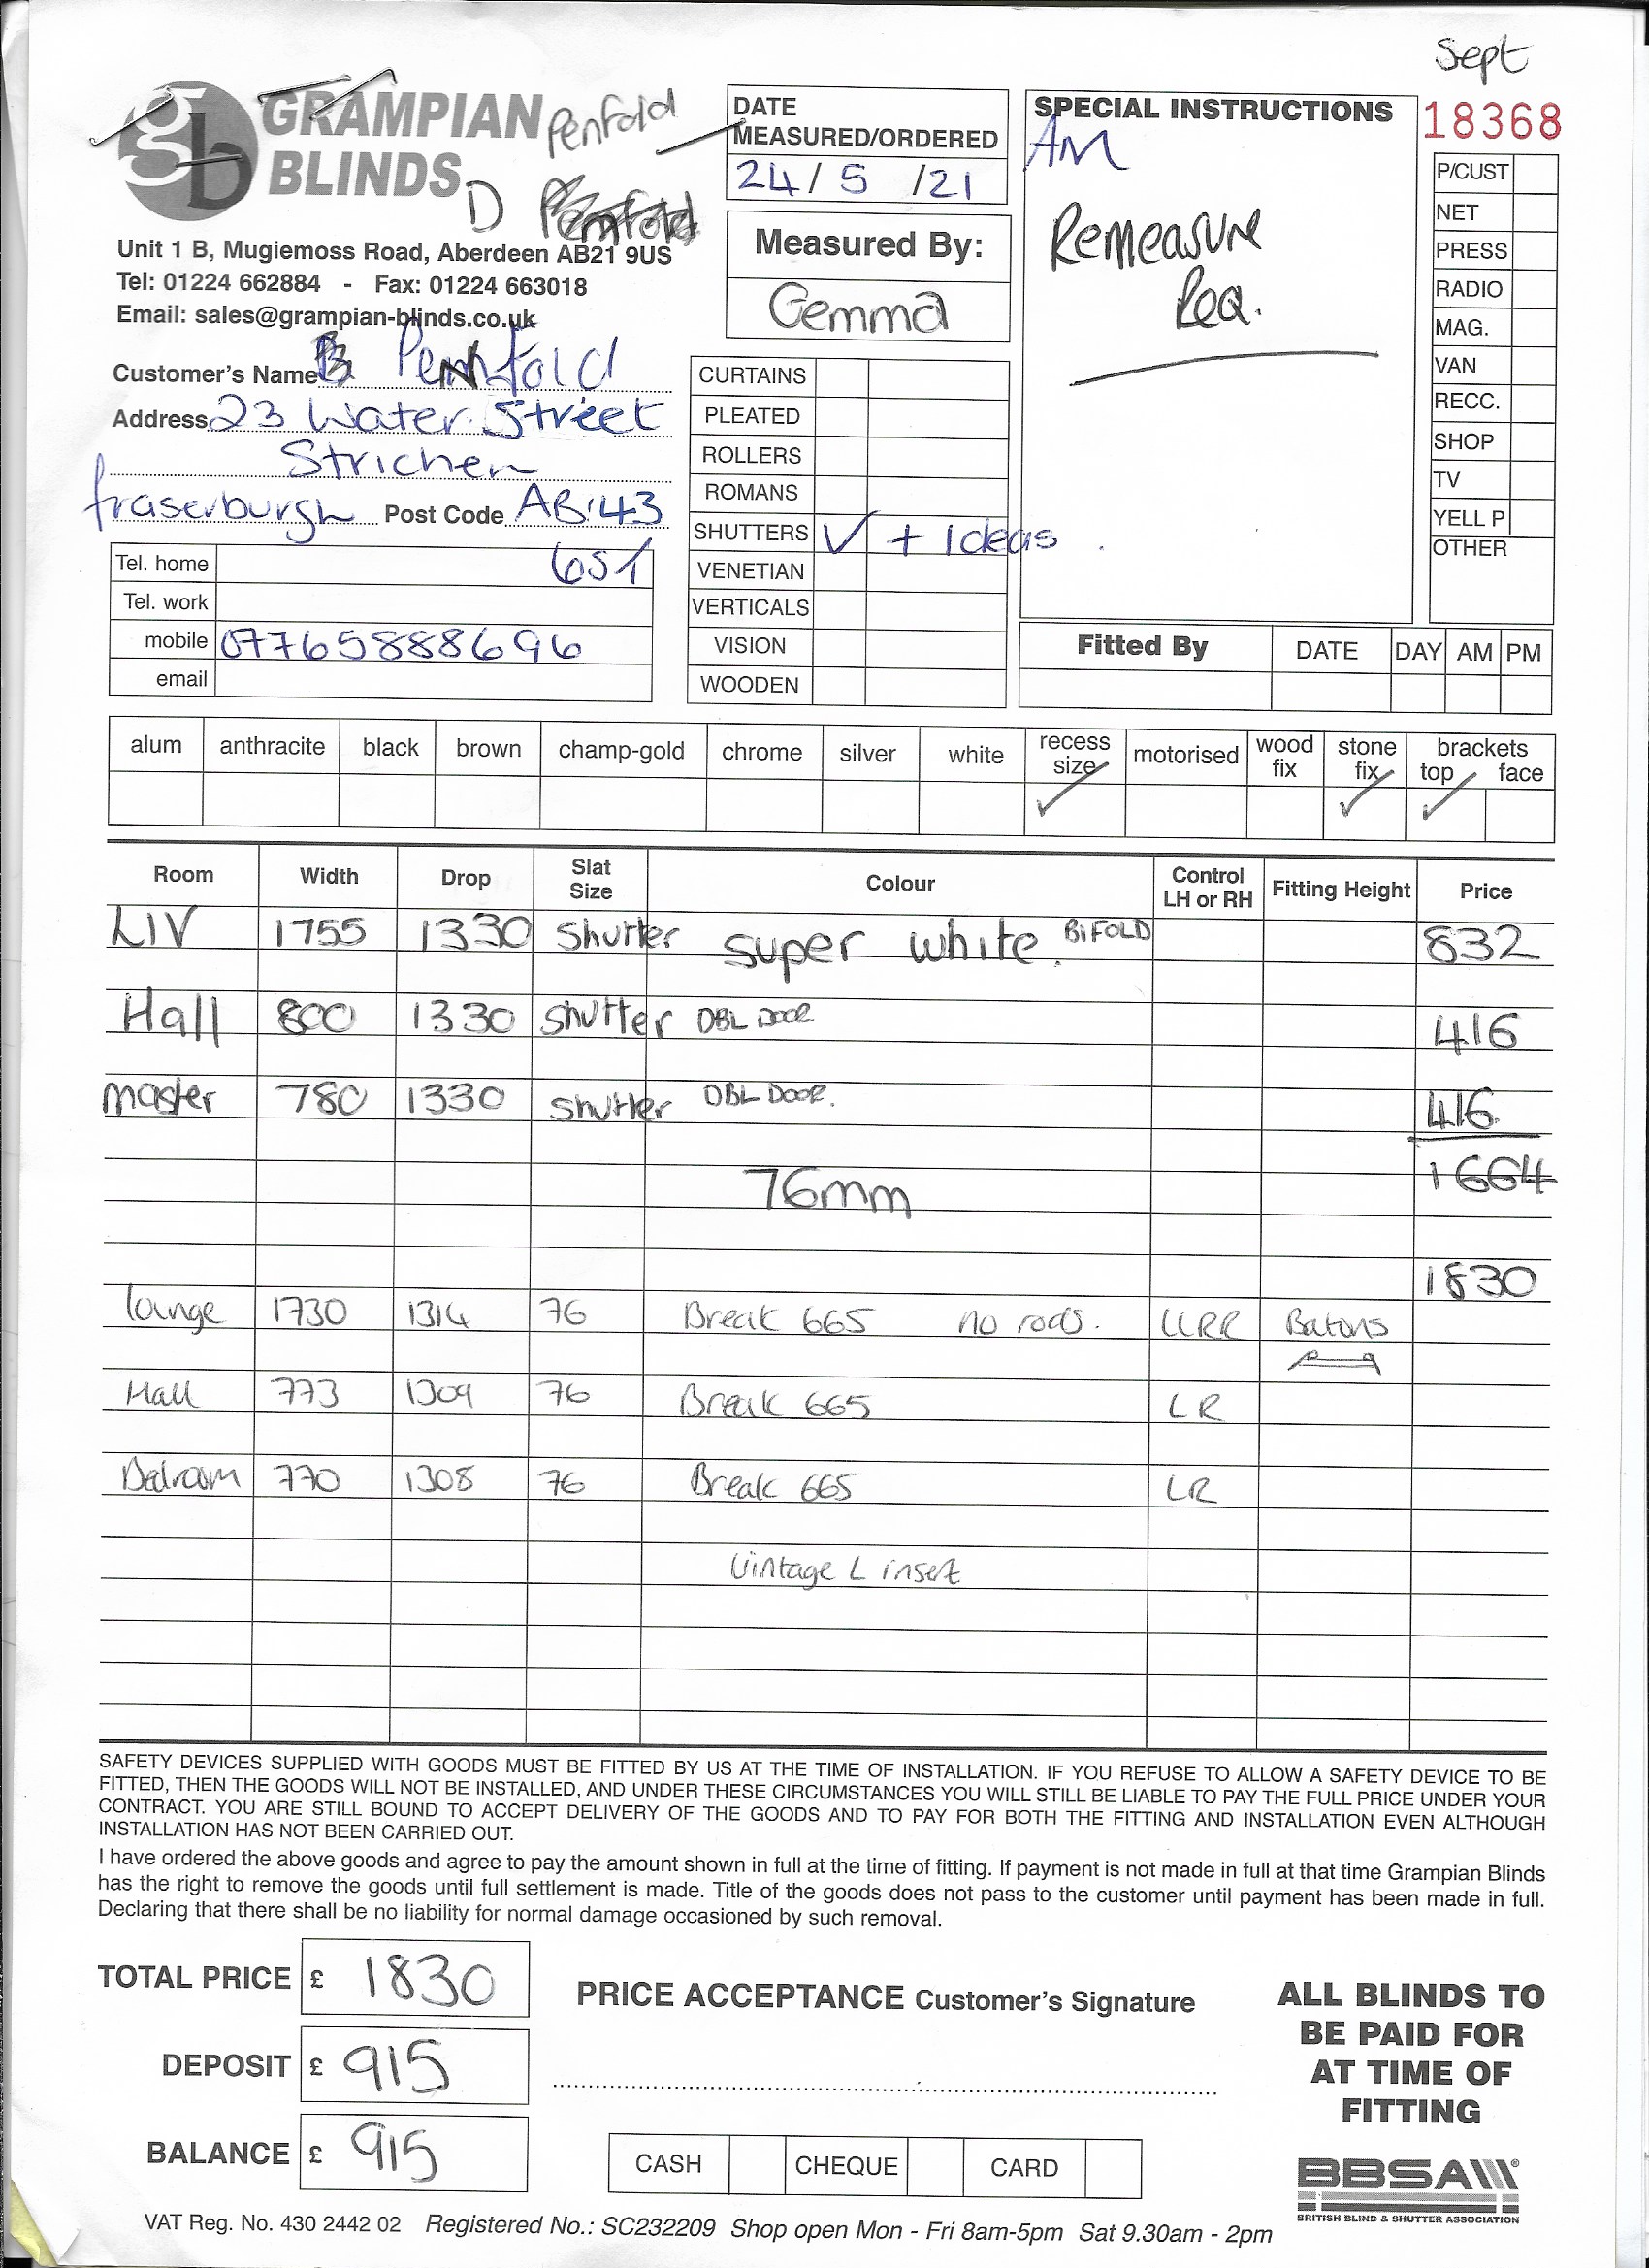 Sept
GRAMPIAN BLINDS
gb
Penfold
D
Unit 1 B, Mugiemoss Road, Aberdeen AB21 9US
Tel: 01224 662884 - Fax: 01224 663018
Email: sales@grampian-blinds.co.uk
DATE MEASURED/ORDERED
24/5/21
Measured By:
Gemma
SPECIAL INSTRUCTIONS
AM
Remeasure
Req.
18368
P/CUST
NET
PRESS
RADIO
MAG.
VAN
RECC.
SHOP
TV
YELL P
OTHER
Customer's Name Penfold
Address 23 Water Street
Strichen
fraserburgh Post Code AB43
6ST
Tel. home
Tel. work
mobile 07765888696
email
CURTAINS
PLEATED
ROLLERS
ROMANS
SHUTTERS ✓ + ideas
VENETIAN
VERTICALS
VISION
WOODEN
Fitted By DATE DAY AM PM
alum anthracite black brown champ-gold chrome silver white recess size motorised wood fix stone fix brackets top face
✓ ✓ ✓
Room Width Drop Slat Size Colour Control LH or RH Fitting Height Price
LIV 1755 1330 Shutter super white. BiFOLD 832
Hall 800 1330 Shutter DBL DOOR 416
master 780 1330 Shutter DBL DOOR. 416
76mm 1664
1830
lounge 1730 1314 76 Break 665 no rods. LLRR Batons
Hall 773 1309 76 Break 665 LR
Bedroom 770 1308 76 Break 665 LR
Vintage L insert
SAFETY DEVICES SUPPLIED WITH GOODS MUST BE FITTED BY US AT THE TIME OF INSTALLATION. IF YOU REFUSE TO ALLOW A SAFETY DEVICE TO BE
FITTED, THEN THE GOODS WILL NOT BE INSTALLED, AND UNDER THESE CIRCUMSTANCES YOU WILL STILL BE LIABLE TO PAY THE FULL PRICE UNDER YOUR
CONTRACT. YOU ARE STILL BOUND TO ACCEPT DELIVERY OF THE GOODS AND TO PAY FOR BOTH THE FITTING AND INSTALLATION EVEN ALTHOUGH
INSTALLATION HAS NOT BEEN CARRIED OUT.
I have ordered the above goods and agree to pay the amount shown in full at the time of fitting. If payment is not made in full at that time Grampian Blinds
has the right to remove the goods until full settlement is made. Title of the goods does not pass to the customer until payment has been made in full.
Declaring that there shall be no liability for normal damage occasioned by such removal.
TOTAL PRICE £ 1830
DEPOSIT £ 915
BALANCE £ 915
PRICE ACCEPTANCE Customer's Signature
CASH CHEQUE CARD
ALL BLINDS TO
BE PAID FOR
AT TIME OF
FITTING
BBSA
BRITISH BLIND & SHUTTER ASSOCIATION
VAT Reg. No. 430 2442 02 Registered No.: SC232209 Shop open Mon - Fri 8am-5pm Sat 9.30am - 2pm